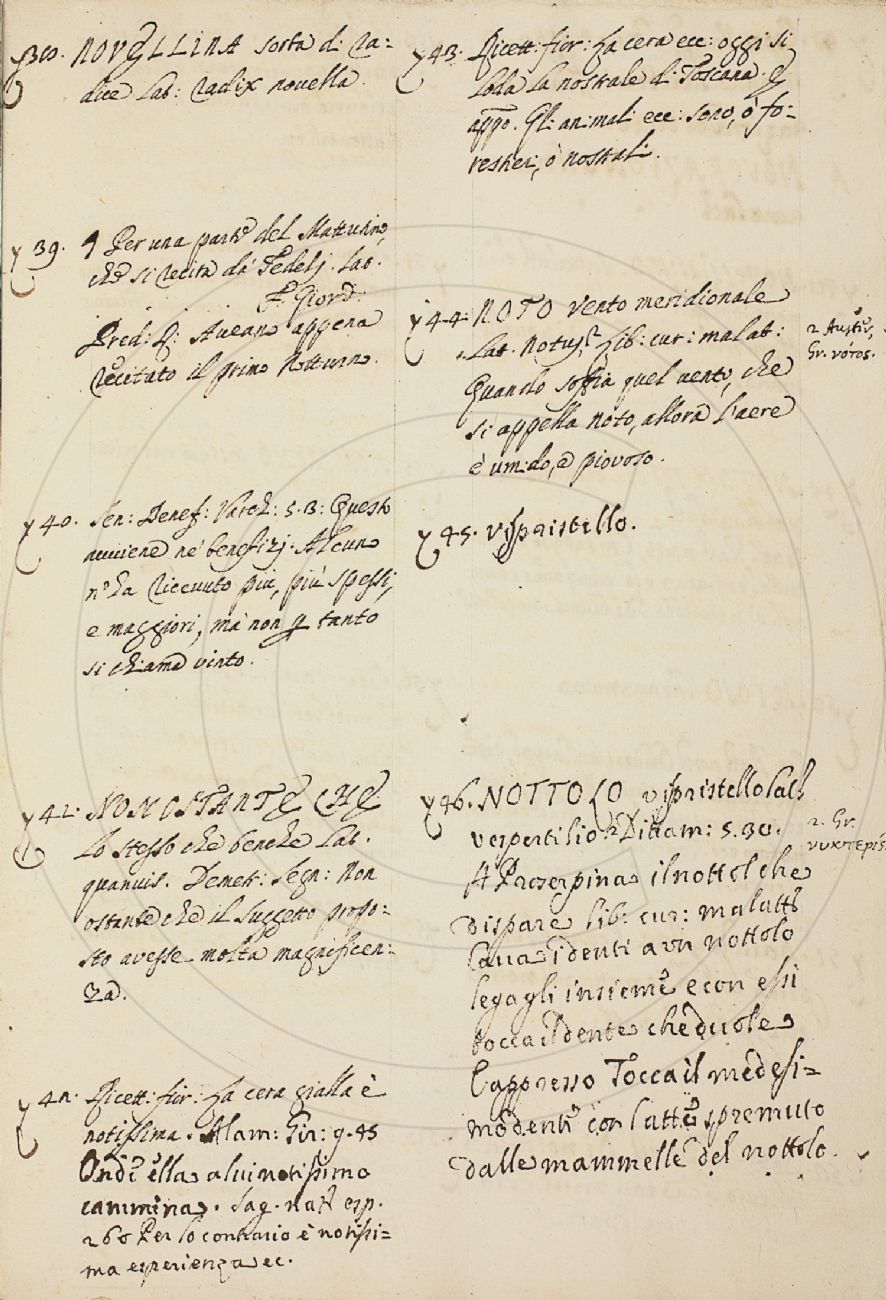 NOVELLINA sorta di ra=
dice Lat: radix novella.
39. Per una parte del Mattutino,
che si recita da' Fedeli. Lat.
F. Giord:
Pred: R: Aveano appena
recitato il primo Notturno.
40. Sen: Benef: Varch: 5.3: Questo
avviene ne' benefizj. Alcuno
n'ha ricevuto più, più spessi,
e maggiori, mà non p tanto
si chiama vinto.
NONOSTANTE CHE
Lo stesso che benche Lat.
quanvis. Demetr: Segn: Non
ostante che il suggetto propo=
sto avesse molta magnificen:
za.
Ricett: fior: La cera gialla è
notissima. Alam: Gir: 9.45
Onde ella a lui notissimo
cammina. Sag. nat. esp.
260 Per lo contrario è notissi=
ma esperienza ec.
43. Ricett: fior: La cera ecc: oggi si
loda la nostrale di Toscana. E
appo. Gli animali ecc: sono, ò fo=
restieri, ò nostrali.
44. NOTO vento meridionale
Lat. Notus, Lib: cur: malat:
Quando soffia quel vento, che
si appella Noto, allora l'aere
è umido, e piovoso.
Gr. νότος.
45. vispristello.
46. NOTTOLO vispristello Lat.
vespertilio Dittam: 5.30.
A Proserpina il nottol che
dispare Lib: cur: malatt.
Cava i denti a un nottolo
legagli insieme e con essi
tocca il dente che duole
E appresso Tocca il medesi=
mo dente con latte spremuto
dalle mammelle del nottolo.
2. Gr.
νυκτερίς.